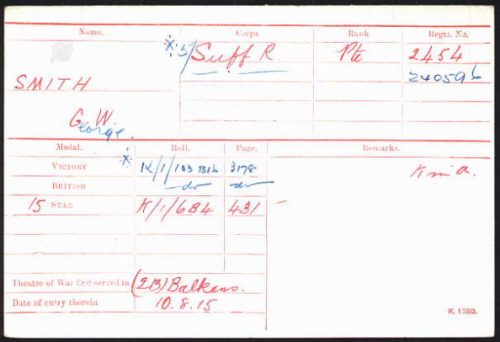 Name. Corps. Rank Regtl. No.
*5/Suff R. Pte 2454
240596
SMITH
G. W.
George.
Medal. Roll. Page. Remarks.
VICTORY * K/1/103 B16 3178
BRITISH -do- do K in a.
15 STAR K/1/6B4 431
Theatre of War first served in (2B) Balkans.
Date of entry therein 10.8.15
K. 1380.